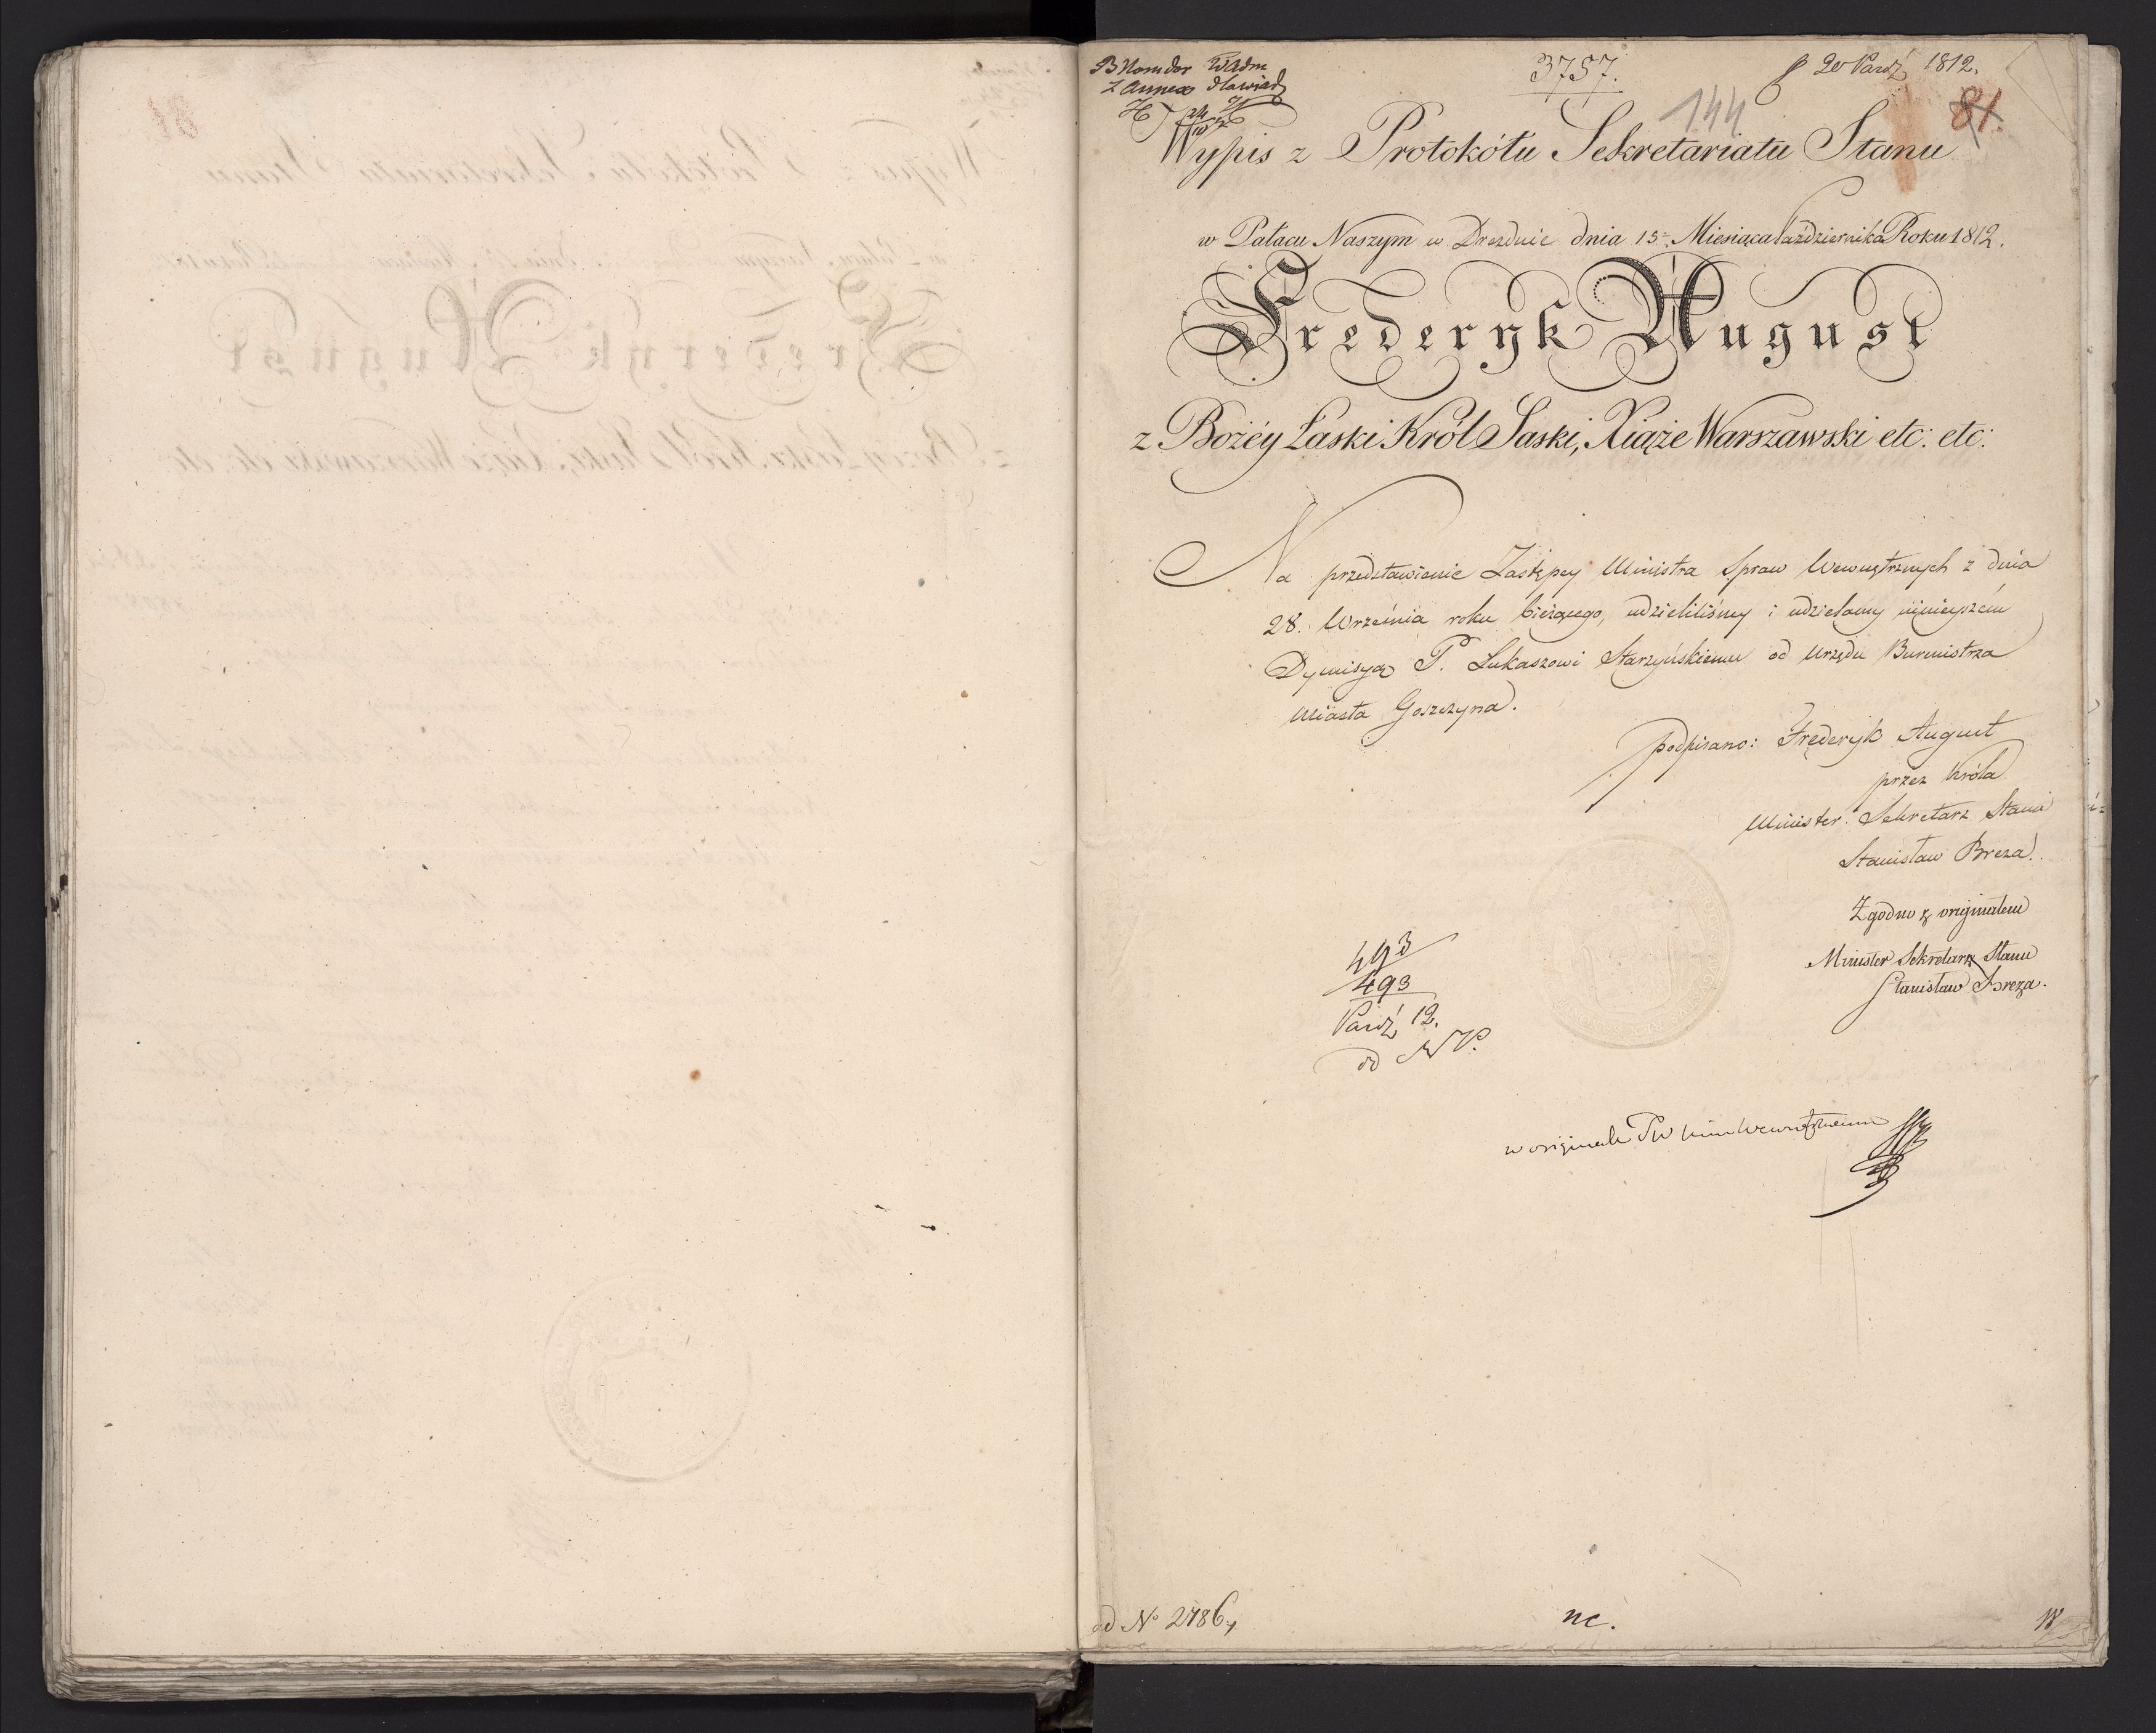 3757.
20 Paźdź 1812.
144
81.
Wypis z Protokółu Sekretariatu Stanu
w Pałacu Naszym w Dreźnie dnia 15. Miesiąca Października Roku 1812.
Frederyk August
z Bożéy Łaski Król Saski, Xiąże Warszawski etc: etc:
Na przedstawienie Zastępcy Ministra Spraw Wewnętrznych z dnia
28. Września roku bieżącego, udzieliliśmy i udzielamy ninieyszém
Dymisyą P. Łukaszowi Starzyńskiemu od Urzędu Burmistrza
Miasta Goszczyna.
podpisano: Frederyk August
przez Króla
Minister Sekretarz Stanu
Stanisław Breza.
Zgodno z originałem
Minister Sekretarz Stanu
Stanisław Breza.
493
493
Paźdź 12.
w originale
ad No 2786
nc.